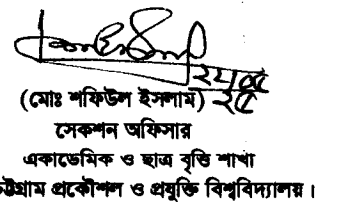 (মোঃ শফিউল ইসলাম)
সেকশন অফিসার
একাডেমিক ও ছাত্র বৃত্তি শাখা
চট্টগ্রাম প্রকৌশল ও প্রযুক্তি বিশ্ববিদ্যালয়।